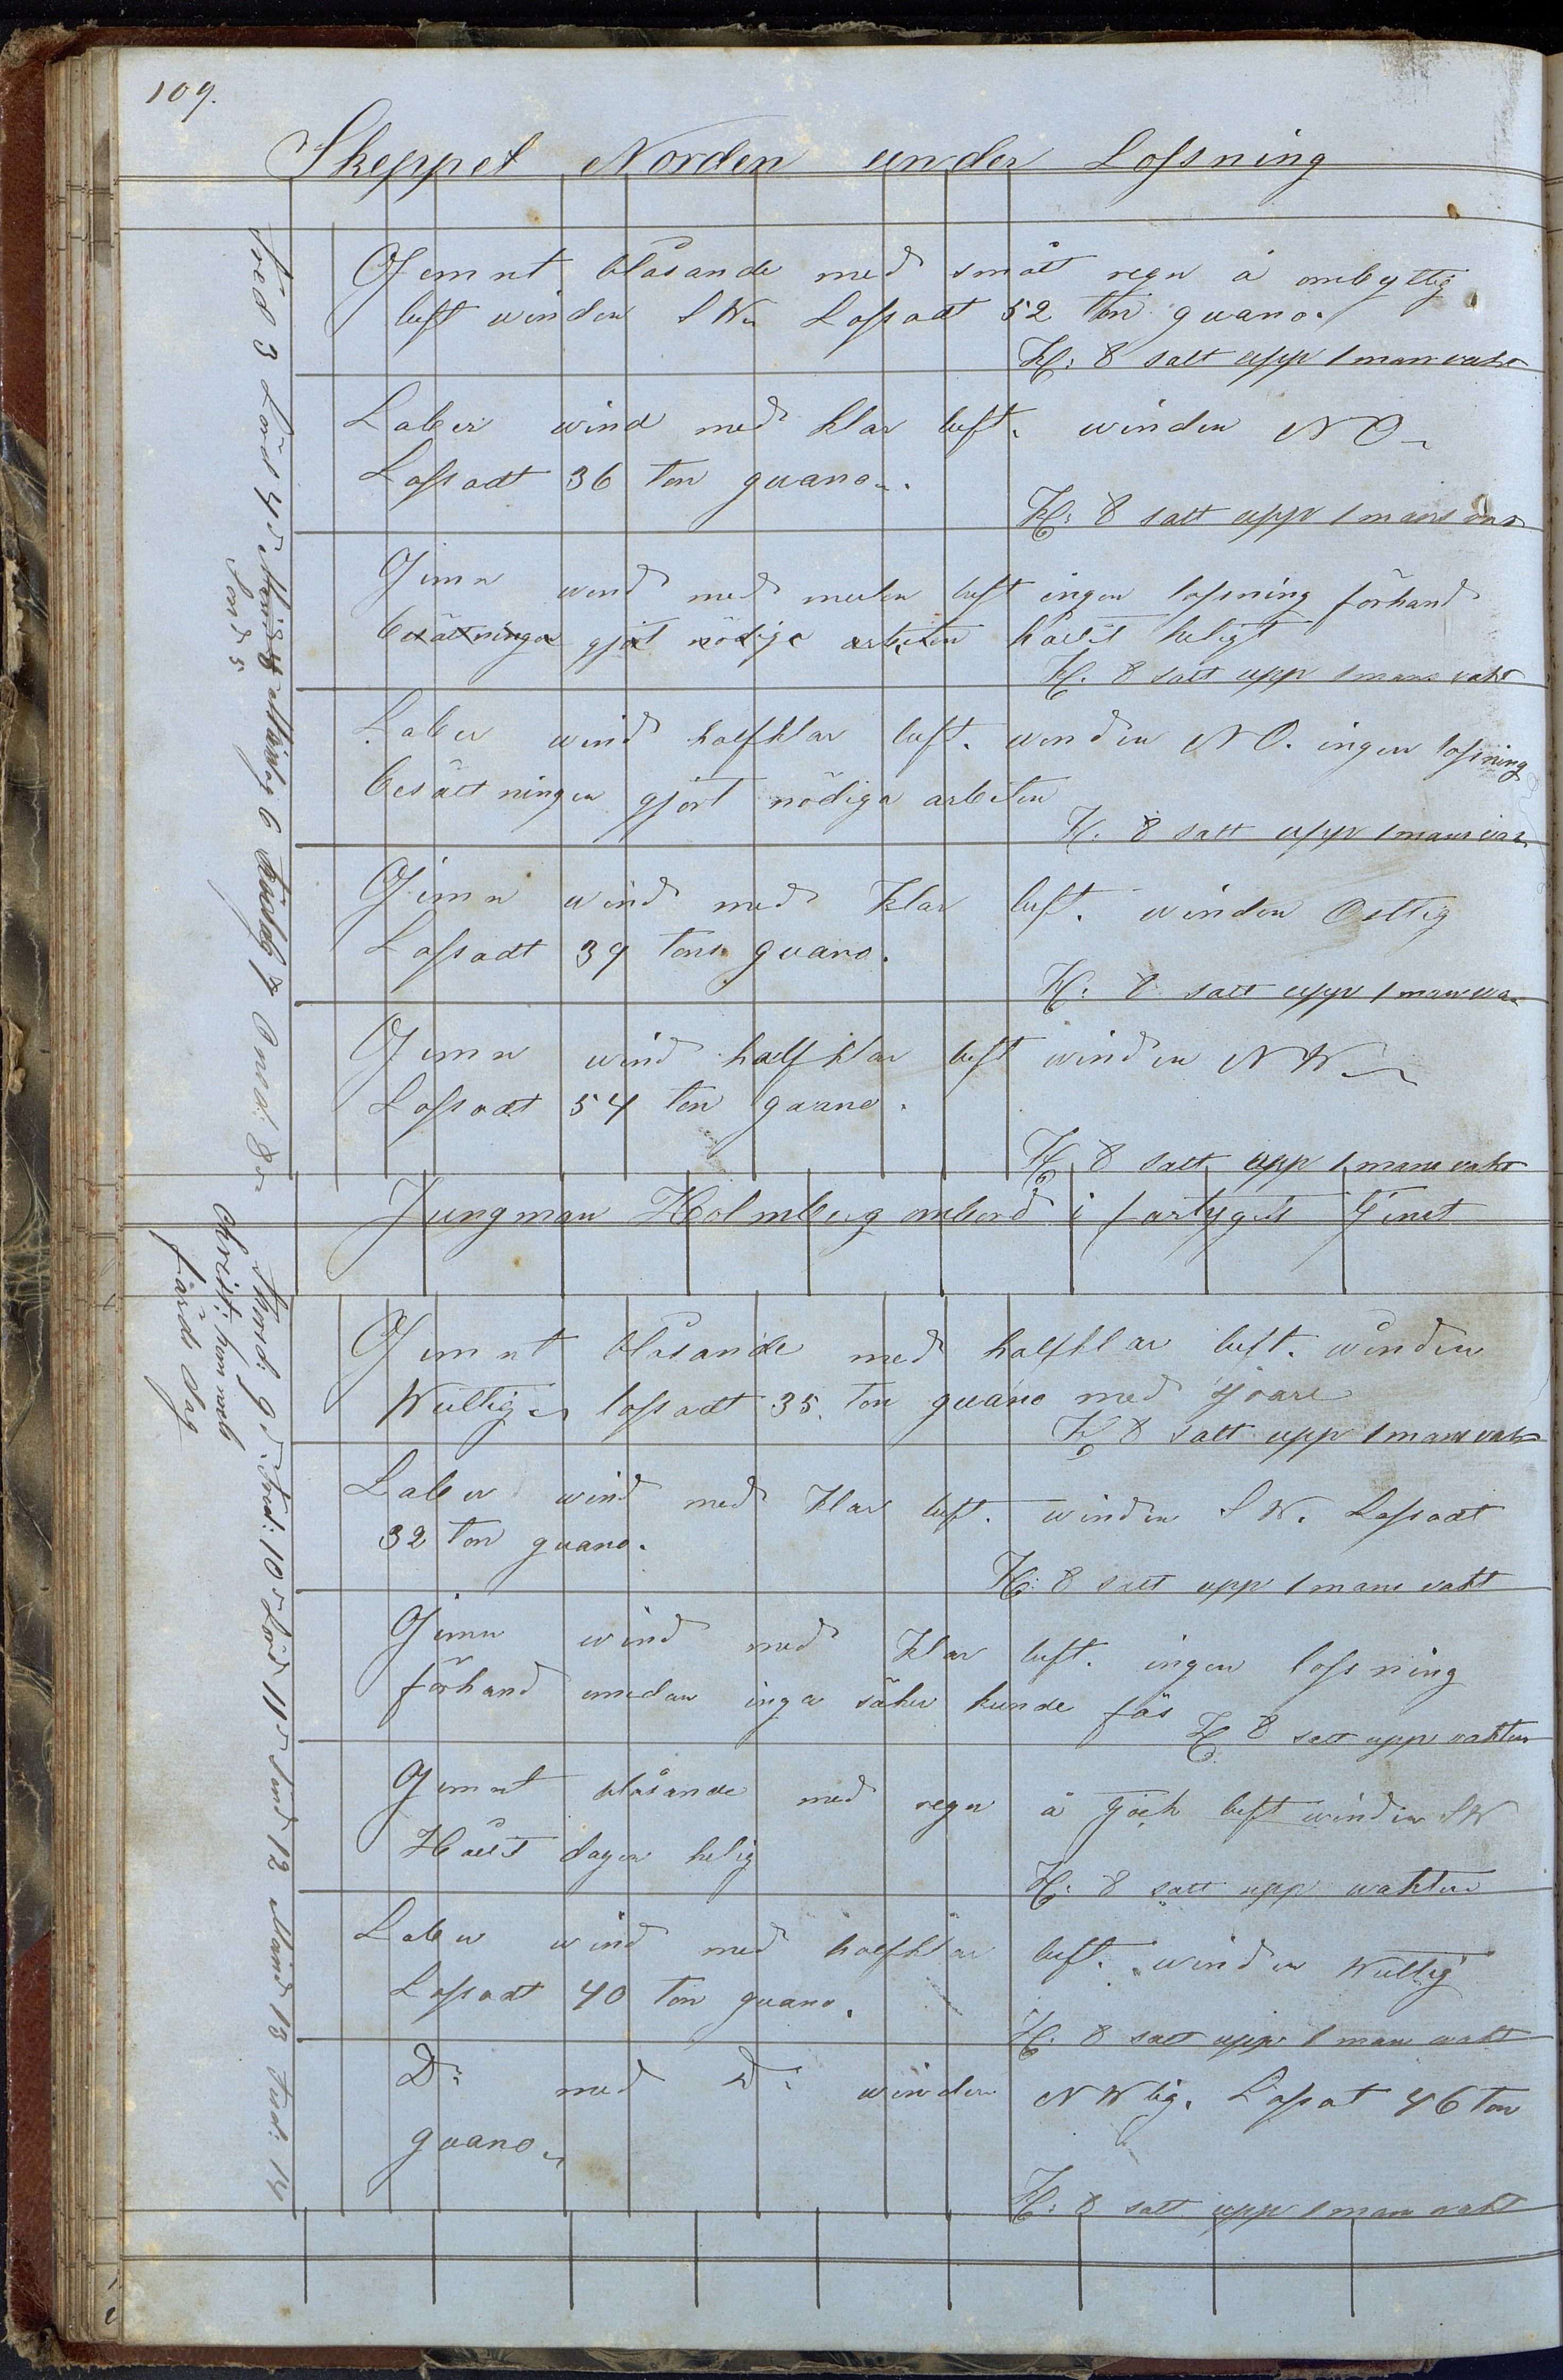 109.
Skeppet Norden under Lossning
Fred 3 Lörd 4 Måndag 6 Tisdag 7 Onsd: 8
Sönd 5
Gemnt blåsande med smått regn å ombyttlig
luft winden SW Lossadt 52 ton guano.
Kl: 8 satt upp 1 man vakt
Laber wind med klar luft. winden NO
Lossadt 36 ton guano.
Kl: 8 satt upp 1 mans
Gemn wind med mulen luft ingen lossning förhand
besättningen gjöt nödige arbeten hållit heligt
Kl. 8 satt upp 1 mans vakt
Laber wind halfklar luft. winden NO. ingen lossning
besättningen gjört nödiga arbeten
Kl. 8 satt upp 1 mans
Gemn wind med klar luft. winden Ostlig
Lossadt 39 tons guano.
Kl: 8 satt upp 1 man
Gemn wind halfklar luft winden NW
Lossadt 54 ton guano.
Kl 8 satt upp 1 mans vakt
Jungman Holmberg ombord i fartygets tjenst
Thord: 9 Fred: 10 Lörd 11 Sönd 12 Månd 13 Tisd: 14
Christi himmels
färds dag
Gemnt blåsande med halfklar luft. winden
Wæstlig lossadt 35 ton guano med
Kl 8 satt upp 1 mans vakt
Laber wind med klar luft. winden SW. Lossadt
32 ton guano.
Kl: 8 satt upp 1 mans vakt
Gemn wind med klar luft. ingen lossning
förhand emedan inga säker kunde fås
Kl 8 satt upp vakten
Gemnt blåsande med regn å tjock luft winden SW
Hållit dagen helig
Kl: 8 satt upp wakten
Laber wind med halfklar luft. winden Wæstlig
Lossadt 40 ton guano.
Kl. 8 satt upp 1 man vakt
Do: med Do: winden NWlig. Lossat 46 ton
guano
Kl: 8 satt upp 1 man vakt